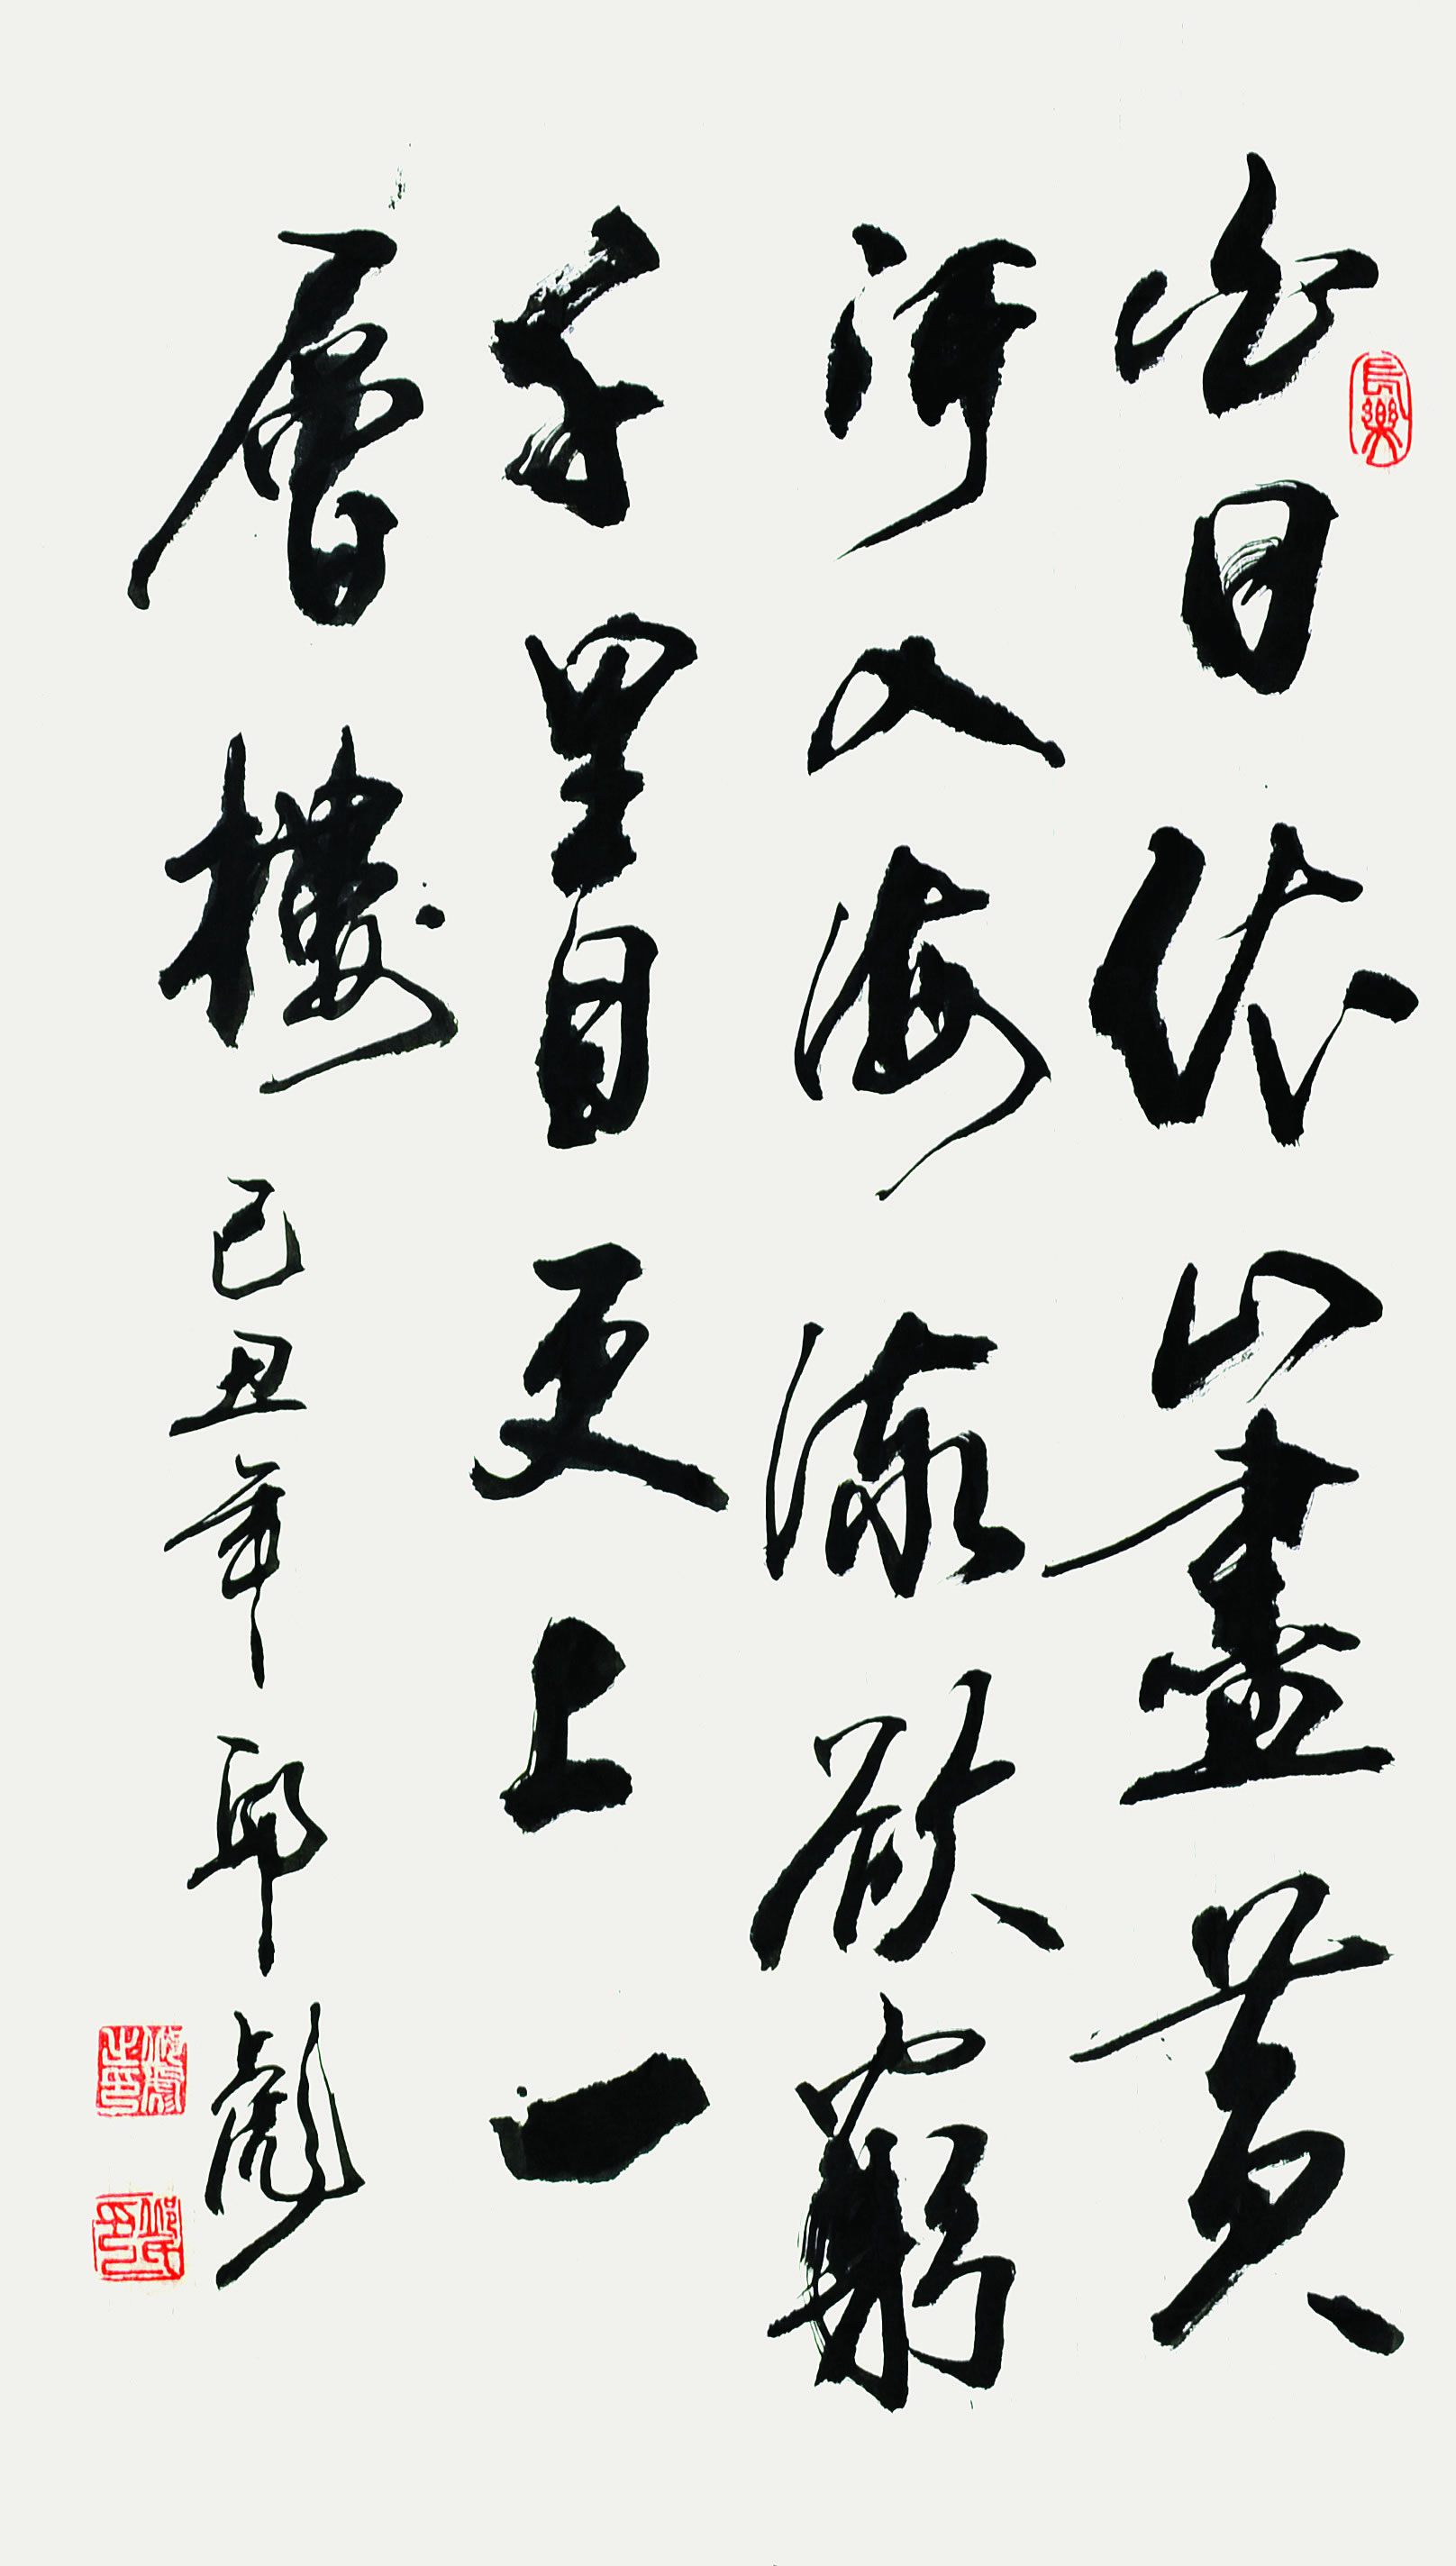 白日依山盡黄
河入海流欲窮
千里目更上一
層樓 己丑年 邱彪
長樂